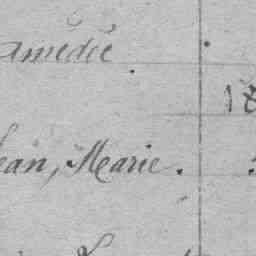 amédée
18
Jean, Marie.